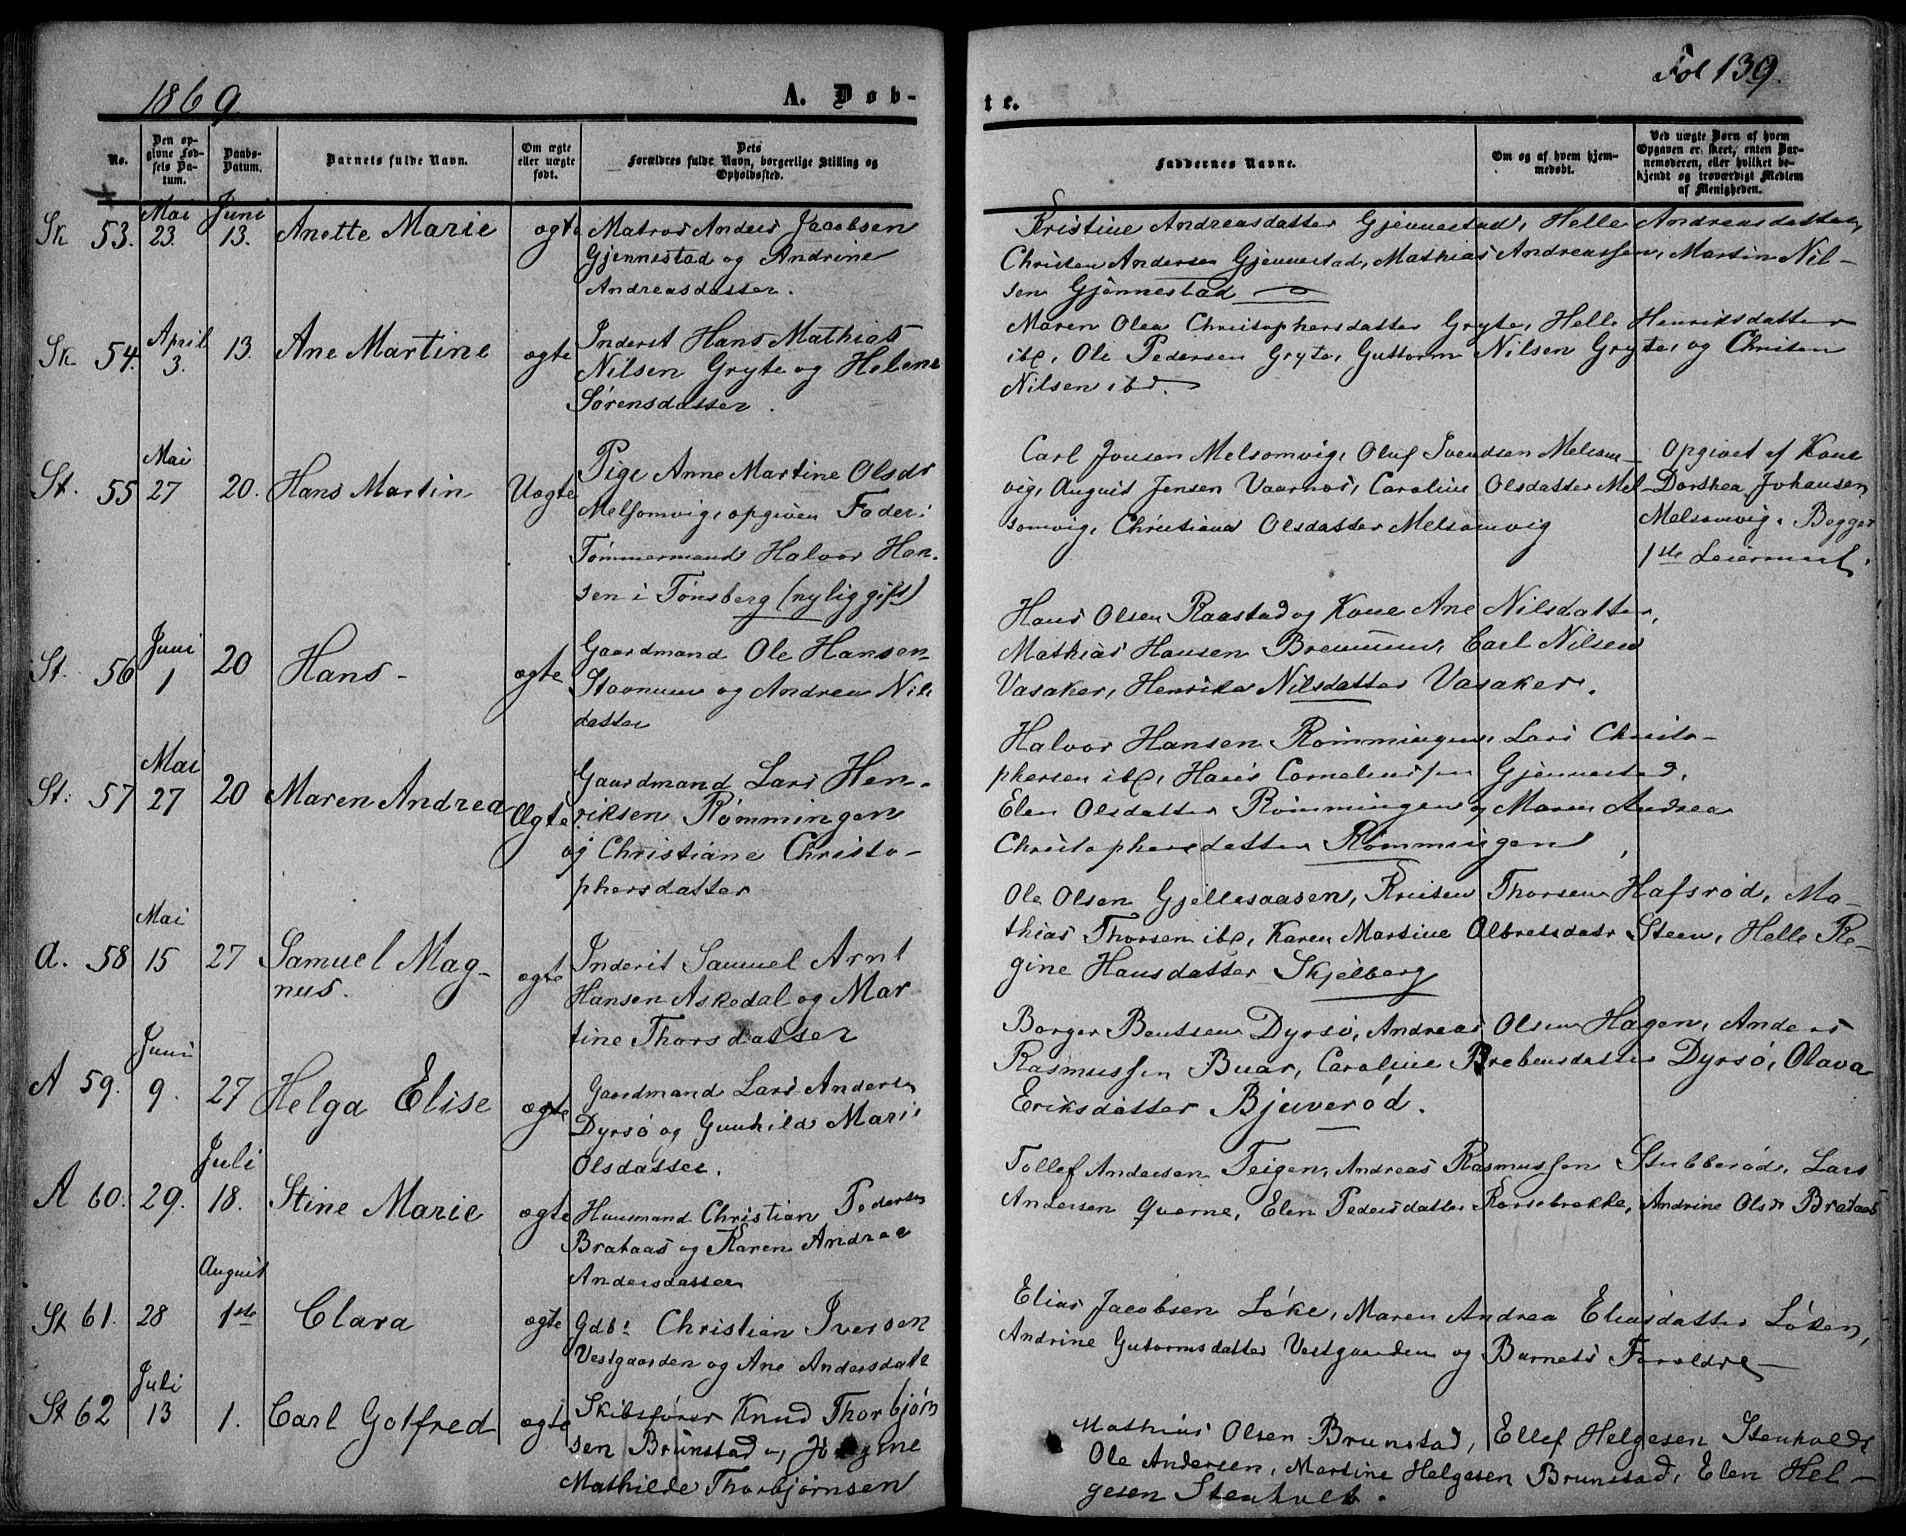 1869.
A. Døb-
te.
Fol 139.
No.
Den op-
givne Fød-
sels Da-
tum.
Daabs-
Datum.
Barnets fulde Navn.
Om ægte
eller uægte
født.
Dets
Forældres fulde Navn, borgerlige Stilling og
Opholdssted.
Faddernes Navne.
Om og af hvem hjem-
medøbt.
Ved uægte Børn af hvem
Opgaven er skeet, enten Bar-
nemoderen, eller hvilket be-
kjendt og troværdigt Medlem
af Menigheden.
Sk 53. Mai 23. Juni 13. Anette Marie ægte
Matros Anders Jacobsen
Gjennestad og Andrine
Andreasdatter.
Kristine Andreasdatter Gjennestad, Helle Andreasdatter,
Christen Andersen Gjennestad, Mathias Andreassen, Martin Nil-
sen Gjennestad
Sk 54. April 3. 13. Ane Martine ægte
Inderst Hans Mathias
Nilsen Gryte og Helene
Sørensdatter.
Maren Olea Christophersdatter Gryte, Helle Henriksdatter
ibd, Ole Pedersen Gryte, Guttorm Nilsen Gryte, og Christen
Nilsen ibd.
St. 55 Mai 27 20. Hans Martin Uægte
Pige Anne Martine Olsdr
Melsomvig, opgiven Fader:
Tømmermand Halvor Han-
sen i Tønsberg (nylig gift)
Carl Jonsen Melsomvig, Oluf Svendsen Melsom-
vig, August Jensen Vaarnes, Caroline Olsdatter Mel-
somvig, Christiane Olsdatter Melsomvig
Opgivet af Kone
Dorthea Johansen
Melsomvig. Begges
1ste Leiermaal.
St. 56 Juni 1 20 Hans - ægte
Gaardmand Ole Hansen
Stavnum og Andrea Nils
datter
Hans Olsen Raastad og Kone Ane Nilsdatter,
Mathias Hansen Bremnum, Carl Nilsen
Vasaker, Henrikke Nilsdatter Vasaker.
St: 57 Mai 27 20 Maren Andrea Ægte
Gaardmand Lars Hen-
riksen Rømmingen
og Christiane Christo-
phersdatter
Halvor Hansen Rømmingen, Lars Christo-
phersen ibd, Hans Corneliussen Gjennestad,
Elen Olsdatter Rømmingen og Maren Andrea
Christophersdatter Rømmingen
A. 58 Mai 15 27 Samuel Mag-
nus. ægte
Inderst Samuel Arnt
Hansen Askedal og Mar
tine Thorsdatter
Ole Olsen Gjellesaasen, Kristen Thorsen Hafsrød, Ma-
thias Thorsen ibd, Karen Martine Olbretsdatr Steen, Helle Re-
gine Hansdatter Skjelberg
A 59. Juni 9. 27 Helga Elise ægte
Gaardmand Lars Andersen
Dyrsø og Gunhild Marie
Olsdatter.
Borger Bentsen Dyrsø, Andreas Olsen Hagen, Anders
Rasmussen Buar, Caroline Brebensdatter Dyrsø, Olava
Eriksdatter Bjuerød.
A 60. 29. Juli 18. Stine Marie ægte
Huusmand Christian Pedersen
Brataas og Karen Andrea
Andersdatter
Tollef Andersen Teigen, Andreas Rasmussen Stubberød, Lars
Andersen Qverne, Elen Pedersdatter Korsebrekke, Andrine Olsdr Brataas
St 61. 28 August 1ste Clara ægte
Gdbr Christian Iversen
Vestgaarden og Ane Andersdatr
Elias Jacobsen Løke, Maren Andrea Eliasdatter Løken,
Andrine Gutormsdatter Vestgaarden og Barnets Forældre
St 62 Juli 13 1. Carl Gotfred ægte
Skibsfører Knud Thorbjørn
sen Brunstad og Jørgine
Mathilde Thorbjørnsen
Mathias Olsen Brunstad, Ellef Helgesen Stenholt
Ole Andersen, Martine Helgesen Brunstad, Elen Hel-
gesen Stenholt.